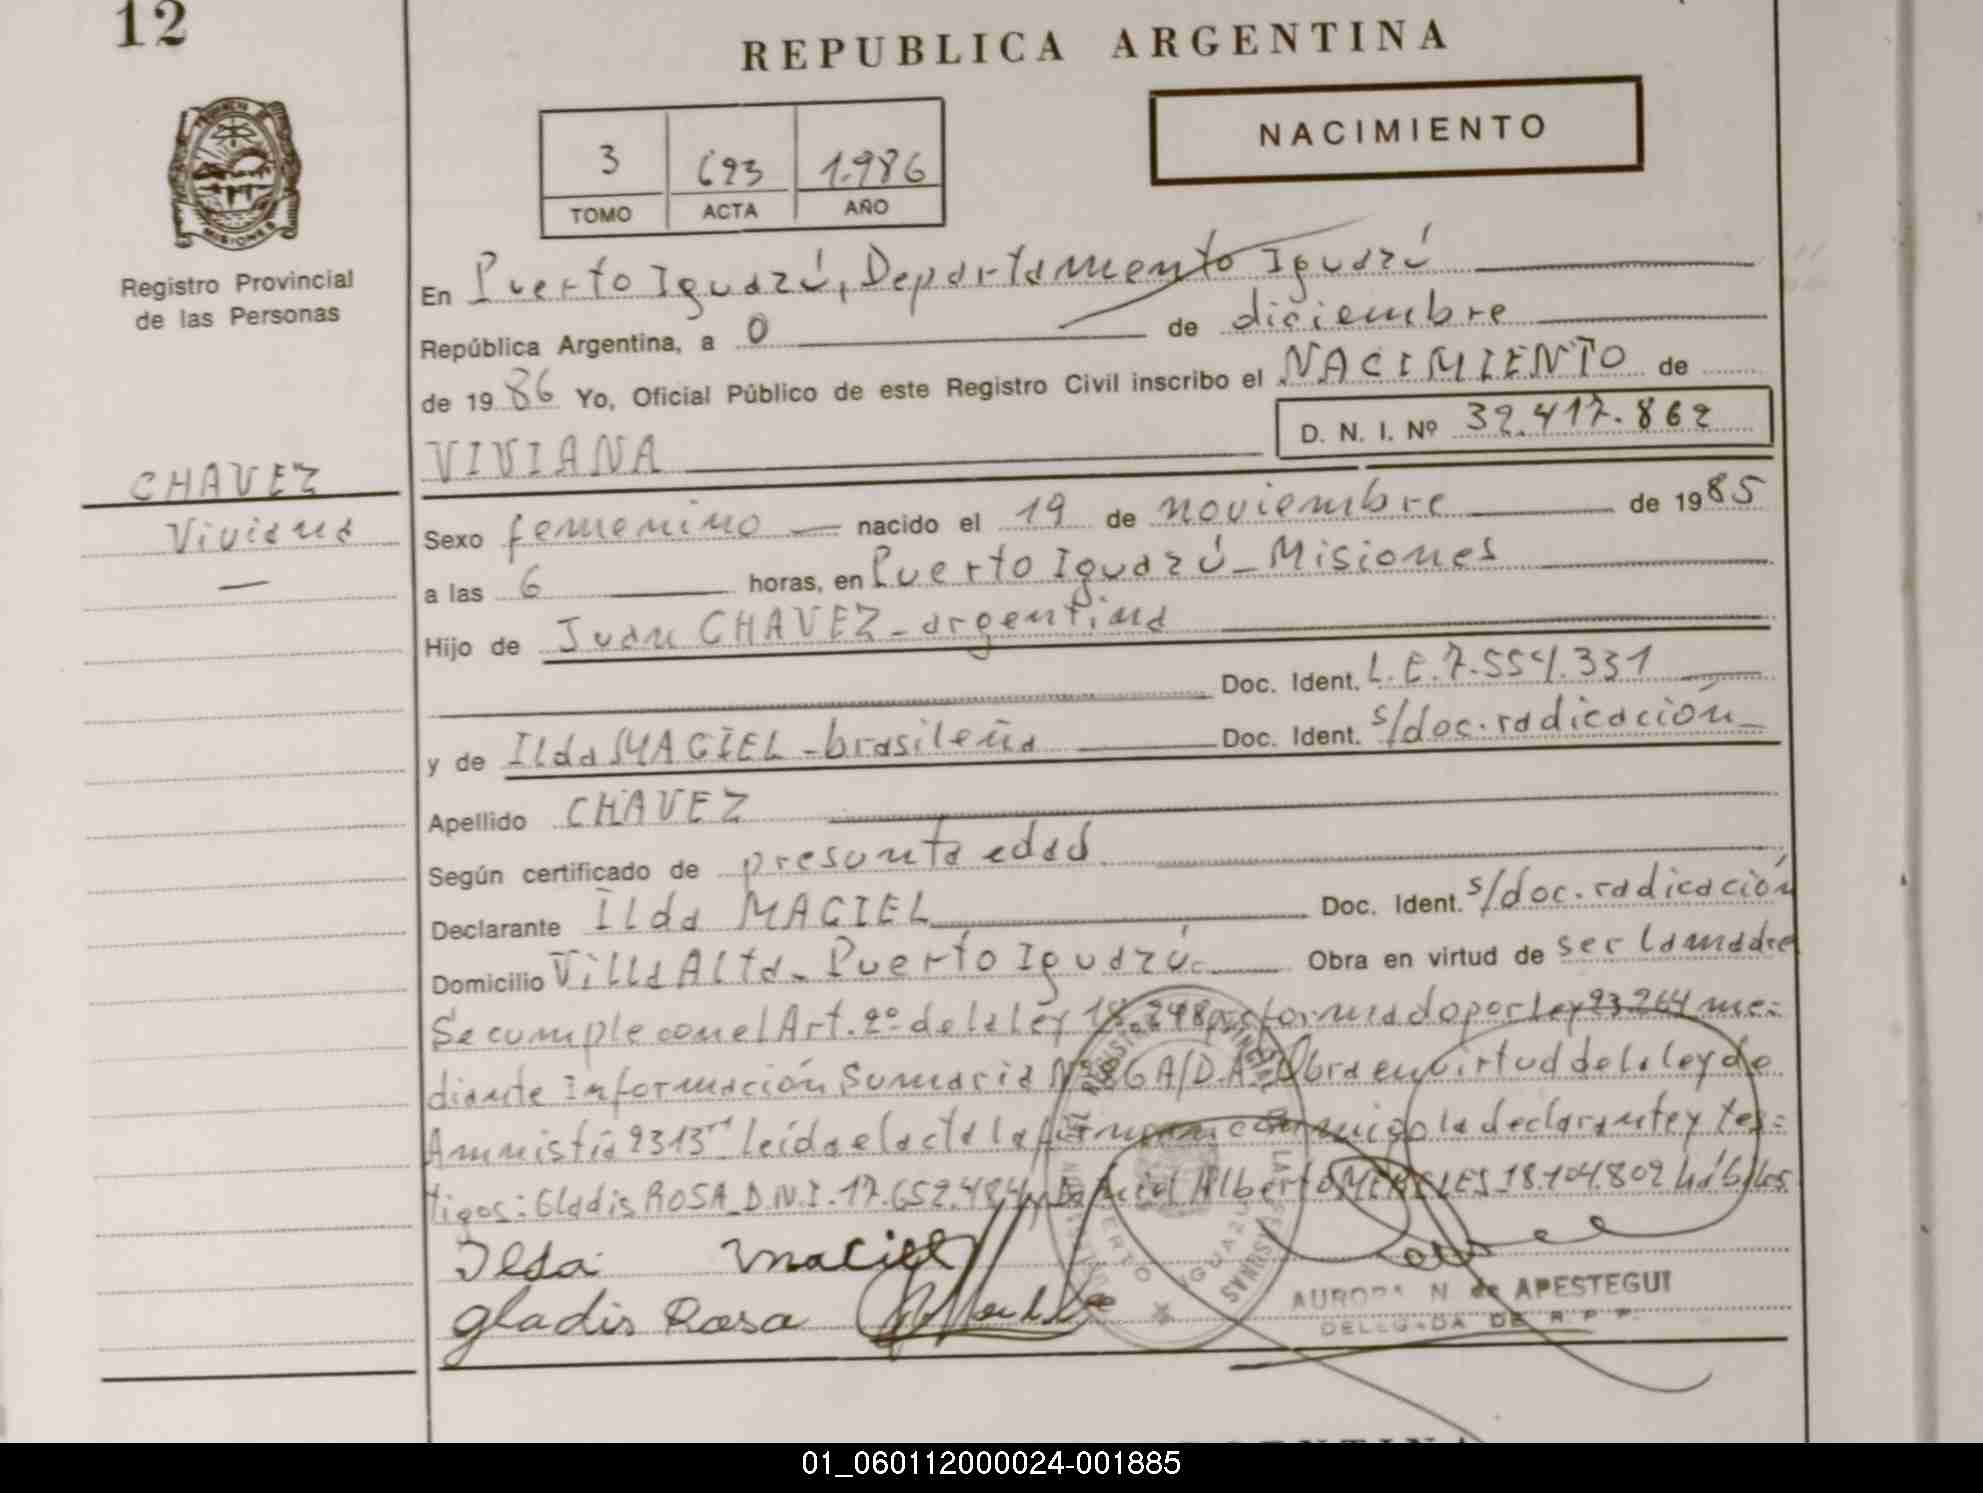 12
REPUBLICA ARGENTINA
NACIMIENTO
3 693 1.986
TOMO ACTA AÑO
MISIONES
Registro Provincial
de las Personas
En Puerto Iguazú, Departamento Iguazú
República Argentina, a 0 de diciembre
de 1986 Yo, Oficial Público de este Registro Civil inscribo el NACIMIENTO de
D. N. I. Nº 32.417.862
VIVIANA
CHAVEZ
Viviana
Sexo femenino — nacido el 19 de noviembre de 1985
a las 6 horas, en Puerto Iguazú - Misiones
Hijo de Juan CHAVEZ - argentina
Doc. Ident. L.E. 7.554.331
y de Ilda MACIEL - brasileña Doc. Ident. s/doc. radicación
Apellido CHAVEZ
Según certificado de presunta edad
Declarante Ilda MACIEL Doc. Ident. s/doc. radicación
Domicilio Villa Alta - Puerto Iguazú Obra en virtud de ser la madre
Se cumple con el Art. 2º de la ley 18.248 reformado por ley 23.264 me=
diante Información Sumaria Nº 86 A/D.A. Obra en virtud de la ley de
Amnistía 2313 leída el acta la firman conmigo la declarante y tes=
tigos: Gladis ROSA D.N.I. 17.652.484 y Alberto 18.104.802 hábiles
Ilda maciel
gladis Rosa
AURORA N de APESTEGUI
DELEGADA DE R.P.P.
01_060112000024-001885